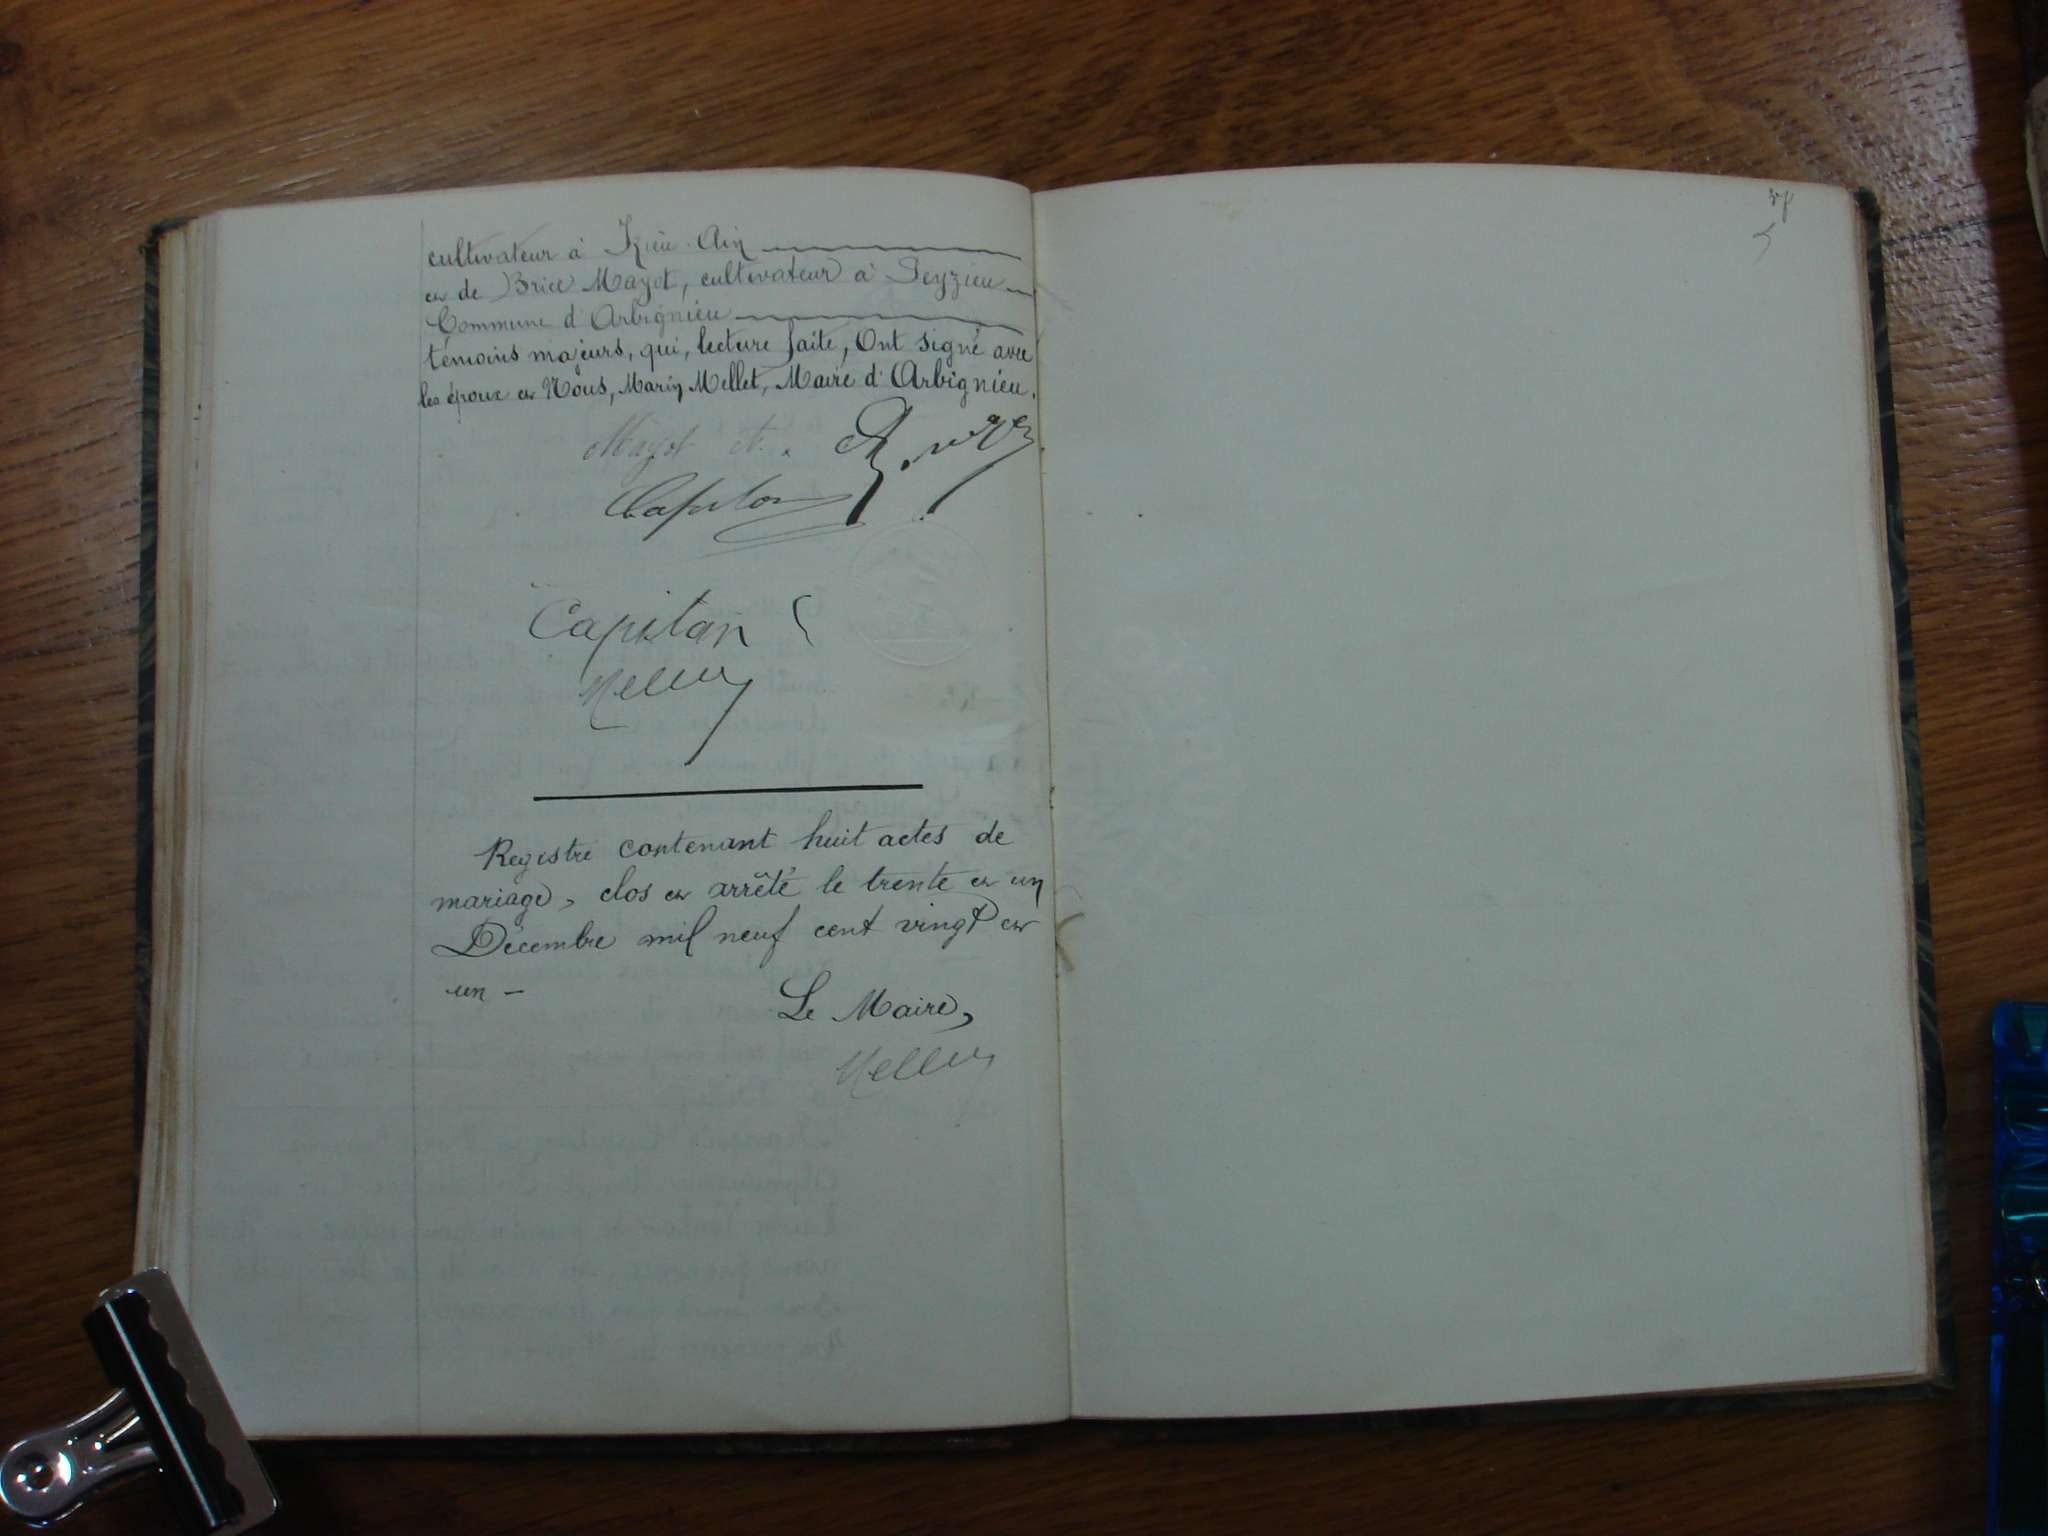 cultivateur à Izieu. Ain
et de Brice Mayot, cultivateur à Peyzieu
Commune d'Arbignieu
témoins majeurs, qui, lecture faite, Ont signé avec
les époux et Nous, Marin Mellet, Maire d'Arbignieu.
Mayot
Capitan
Capitan
Mellet
Registre contenant huit actes de
mariage, clos et arrêté le trente et un
Décembre mil neuf cent vingt et
un -
Le Maire,
Mellet